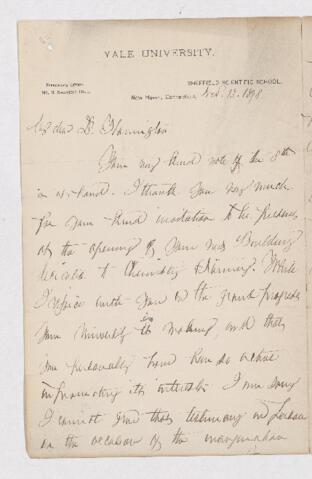 YALE UNIVERSITY.
SHEFFIELD SCIENTIFIC SCHOOL.
New Haven, Connecticut, 1898
My dear Dr. Harrington
Your very kind note of the 8th
is at hand. I thank you very much
for your kind invitation to be present
at the opening of your new Building
devoted to Chemistry & Mining. While
I rejoice with you in the great progress
your University is making, and that
you personally have been so active
in promoting its interests I am sorry
I cannot give that testimony in person
on the occasion of the inauguration